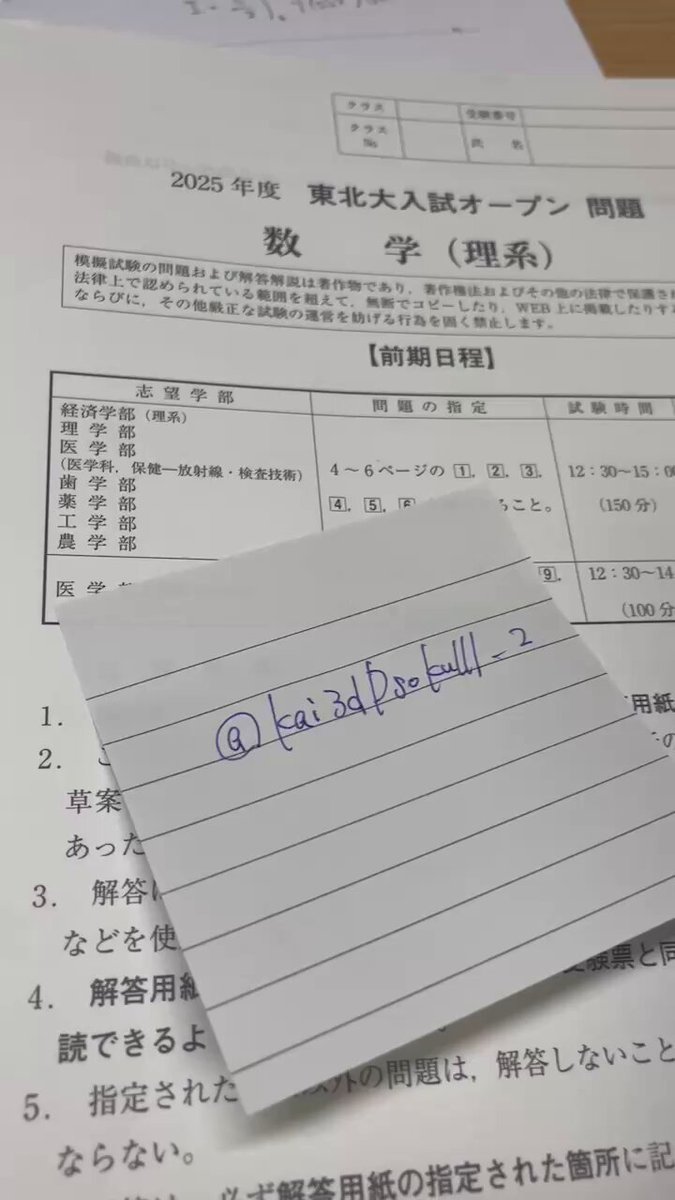 クラス 受験番号
クラス No 氏 名
2025年度 東北大入試オープン 問題
数 学(理系)
模擬試験の問題および解答解説は著作物であり,著作権法およびその他の法律で保護され
法律上で認められている範囲を超えて,無断でコピーしたり,WEB上に掲載したりす
ならびに,その他厳正な試験の運営を妨げる行為を固く禁止します。
【前期日程】
志望学部 問題の指定 試験時間
経済学部(理系)
理学部
医学部
(医学科,保健―放射線・検査技術)
歯学部
薬学部
工学部
農学部
4~6ページの 1, 2, 3,
4, 5, 6 ること。
12:30~15:00
(150分)
医学
9,
12:30~14
(100分
@kai3dPsokull-2
1.
用紙
2.
の
草案
あった
3. 解答
などを使
4. 解答用紙
受験票と同
読できるよ
5. 指定された 以外の問題は,解答しないこと
ならない。
必ず解答用紙の指定された箇所に記